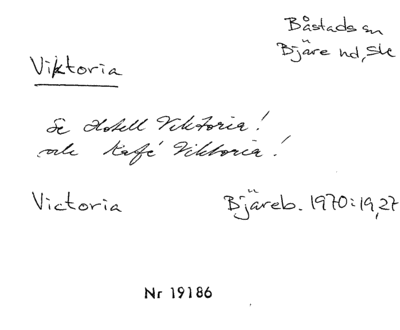 Båstads sn
Bjäre hd, Ske
Viktoria
Se Hotell Viktoria!
och Kafé Viktoria!
Victoria Bjäreb. 1970:19,27
Nr 19186